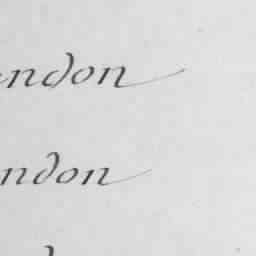 ndon
ndon